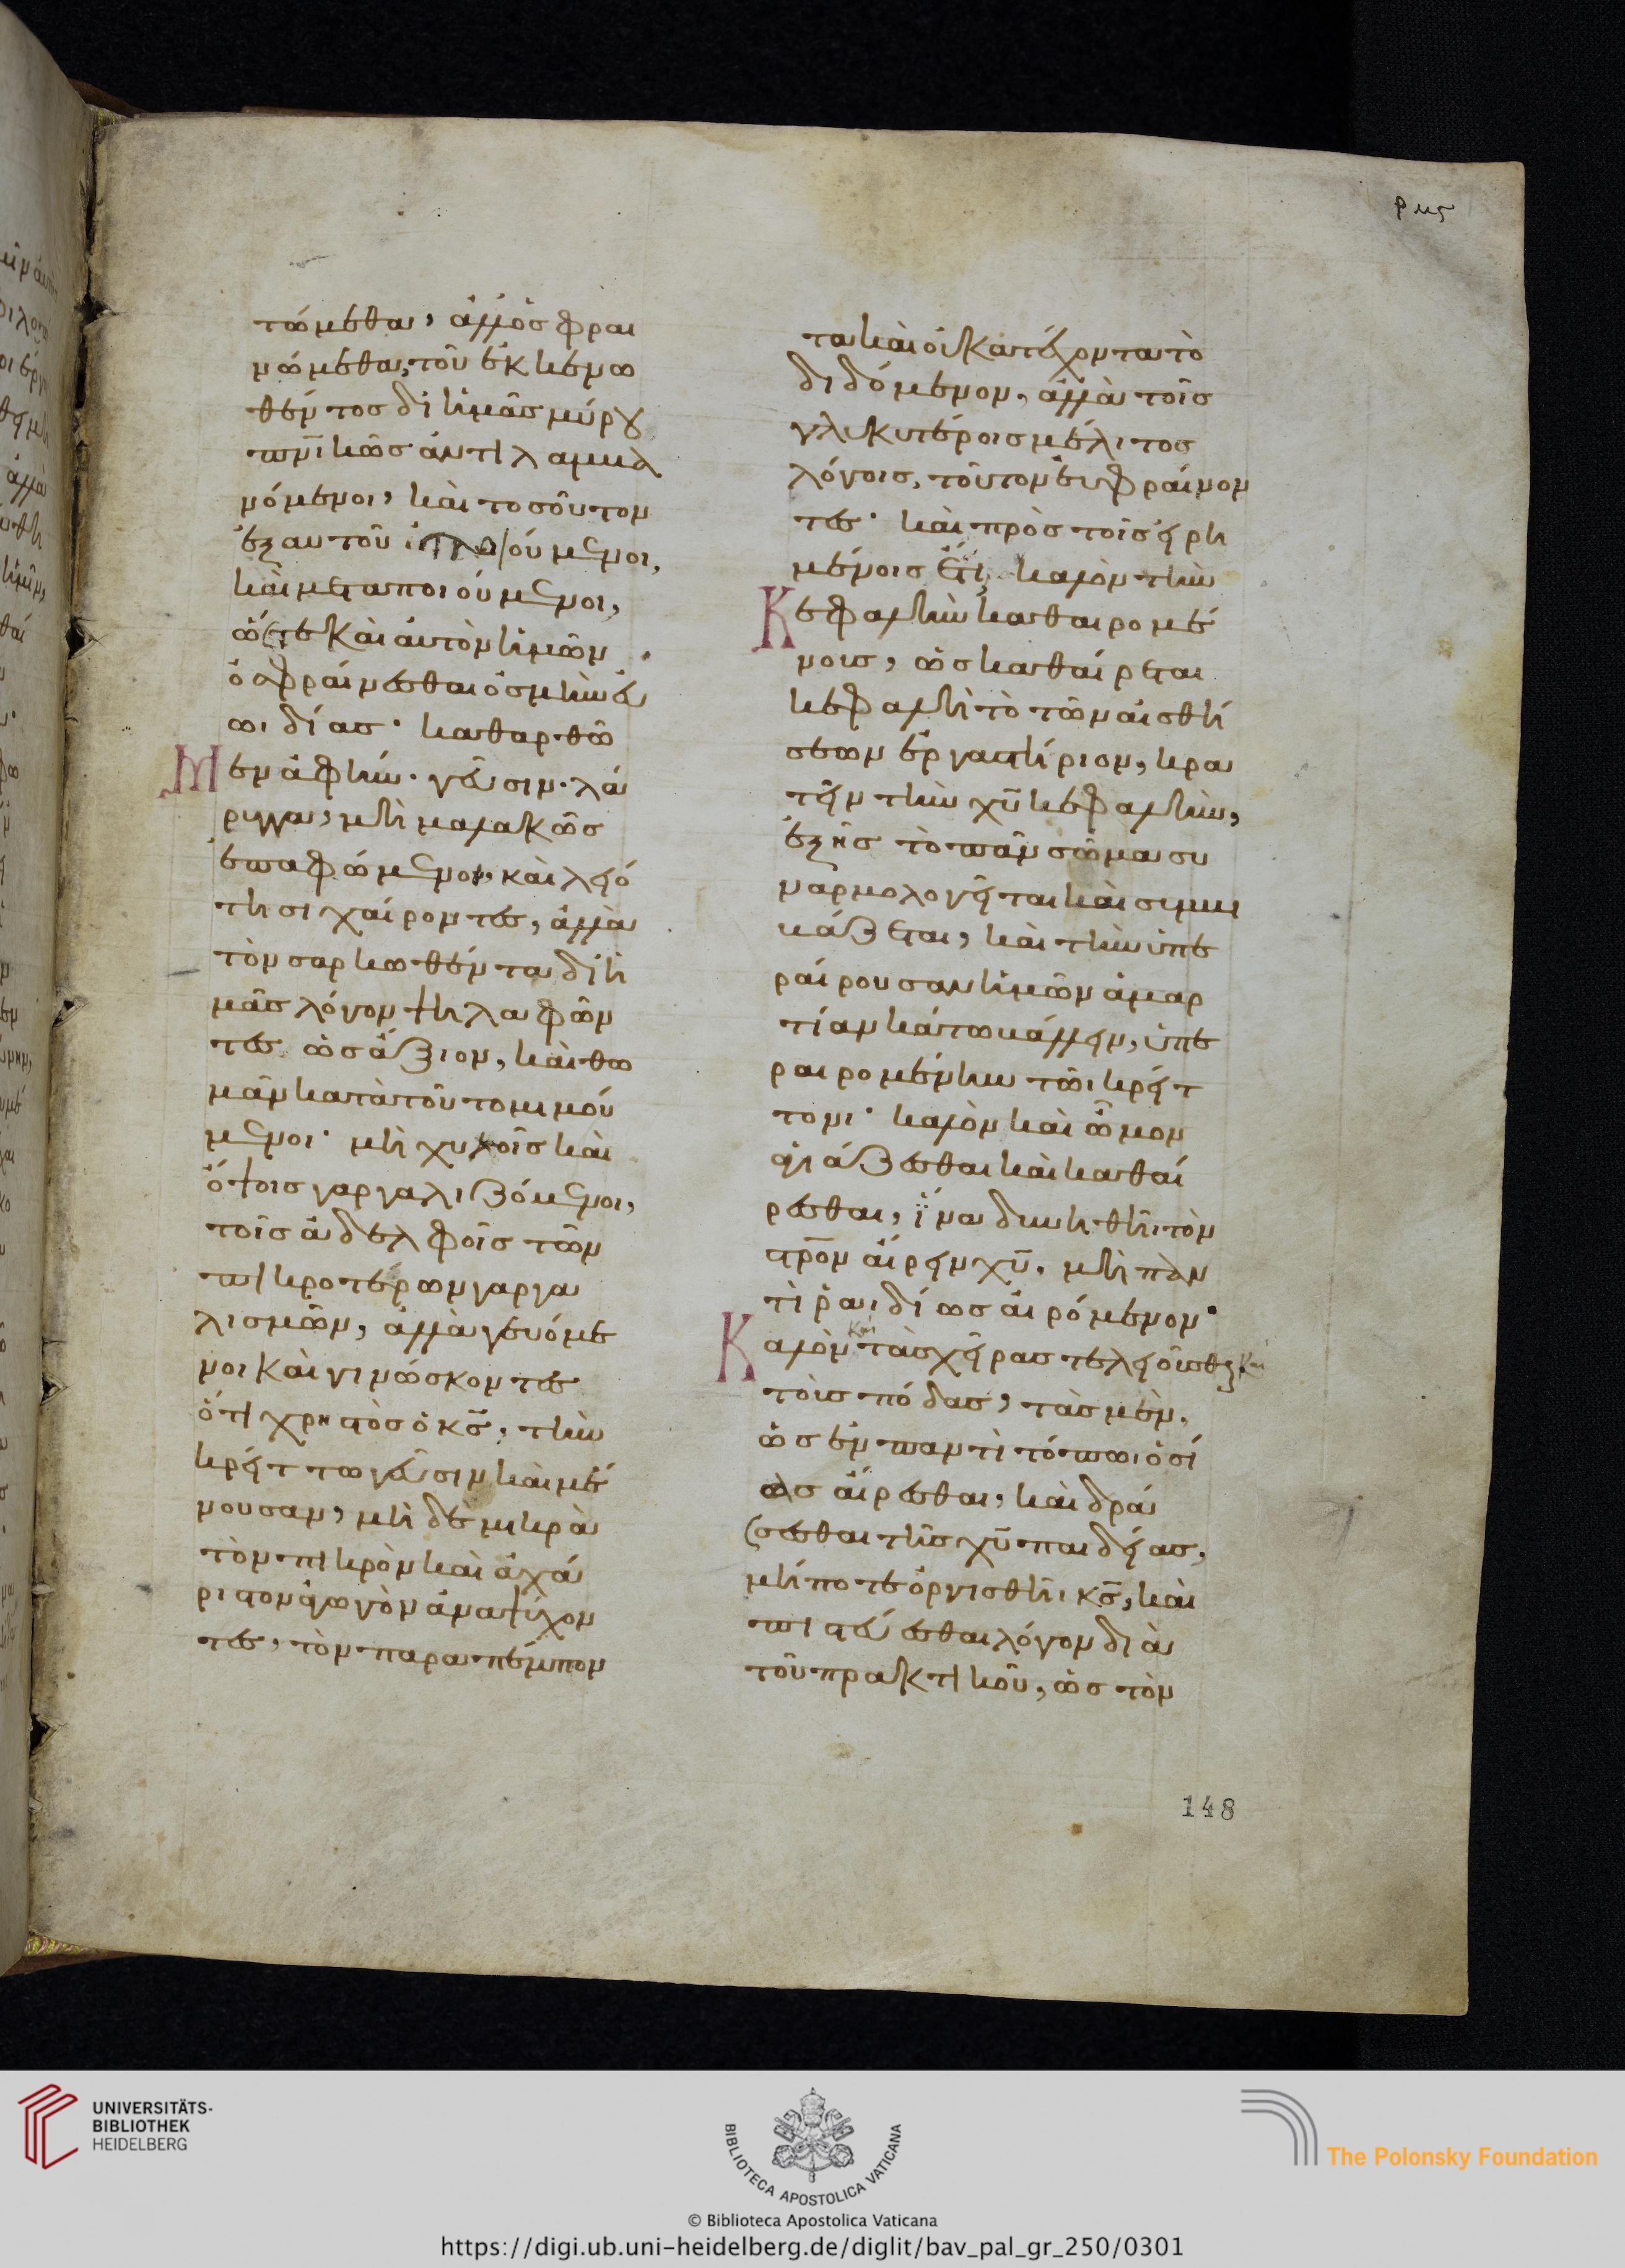 ρμϛ
τώμεθα, ἀλλ' ὀσφραι
νώμεθα, τοῦ ἐκκενω
θέντος δι' ἡμᾶς μύρου
πνικῶς ἀντιλαμβα
νόμενοι, καὶ τοσοῦτον
ἐξ αὐτοῦ ούμενοι,
καὶ μεταποιούμενοι,
ὥστε καὶ αὐτὸν ἡμῶν
ὀσφραίνεσθαι ὀσμὴν εὐ
ωιδίας· καθαρθῶ
Μεν ἁφὴν· γεῦσιν· λά
ρυγγα, μὴ μαλακῶς
ἐπαφώμενοι, καὶ λειό
τησι χαίροντες, ἀλλὰ
τὸν σαρκωθέντα δι' ἡ
μᾶς λόγον ψηλαφῶν
τες ὡς ἄξιον, καὶ θω
μᾶν κατὰ τοῦτο μιμού
μενοι· μὴ χυμοῖς καὶ
ὄψοις γαργαλιζόμενοι,
τοῖς ἀδελφοῖς τῶν
πικροτέρων γαργα
λισμῶν, ἀλλὰ γευόμε
νοι καὶ γινώσκοντες
ὅτι χρηστὸς ὁ κς, τὴν
κρείττω γεῦσιν καὶ μέ
νουσαν, μὴ δὲ μικρὰ
τὸν πικρὸν καὶ ἀχά
ριστον ἀγωγὸν ἀναψύχον
τες, τὸν παραπέμπον
τα καὶ οὐ κατέχοντα τὸ
διδόμενον, ἀλλὰ τοῖς
γλυκυτέροις μέλιτος
λόγοις, τοῦτον εὐφραίνον
τες· καὶ πρὸς τοῖς εἰρη
μένοις ἔτι, καλὸν τὴν
Κεφαλὴν καθαιρομέ
νοις, ὡς καθαίρεται
κεφαλὴ τὸ τῶν αἰσθή
σεων ἐργαστήριον, κρα
τεῖν τὴν χῦ κεφαλὴν,
ἐξ ἧς τὸ πᾶν σῶμα συ
ναρμολογεῖται καὶ συμβι
βάζεται, καὶ τὴν ὑπε
ραίρουσαν ἡμῶν ἁμαρ
τίαν κάτω βάλλειν, ὑπε
ραιρομένην τῶι κρείτ
τονι· καλὸν καὶ ὦμον
ἁγιάζεσθαι καὶ καθαί
ρεσθαι, ἵνα δυνηθῆι τὸν
στρον αἴρειν χῦ, μὴ παν
τὶ ῥαιδίως αἰρόμενον·
Καλὸν καὶ τὰς χεῖρας τελειοῦσθαι καὶ
τοὺς πόδας, τὰς μὲν,
ὡς ἐν παντὶ τόπωι ὁσί
ας αἴρεσθαι, καὶ δρά
σεσθαι τῆς χῦ παιδείας,
μήποτε ὀργισθῆι κς, καὶ
πιστεύεσθαι λόγον διὰ
τοῦ πρακτικοῦ, ὡς τὸν
148
UNIVERSITÄTS-
BIBLIOTHEK
HEIDELBERG
BIBLIOTECA APOSTOLICA VATICANA
The Polonsky Foundation
© Biblioteca Apostolica Vaticana
https://digi.ub.uni-heidelberg.de/diglit/bav_pal_gr_250/0301